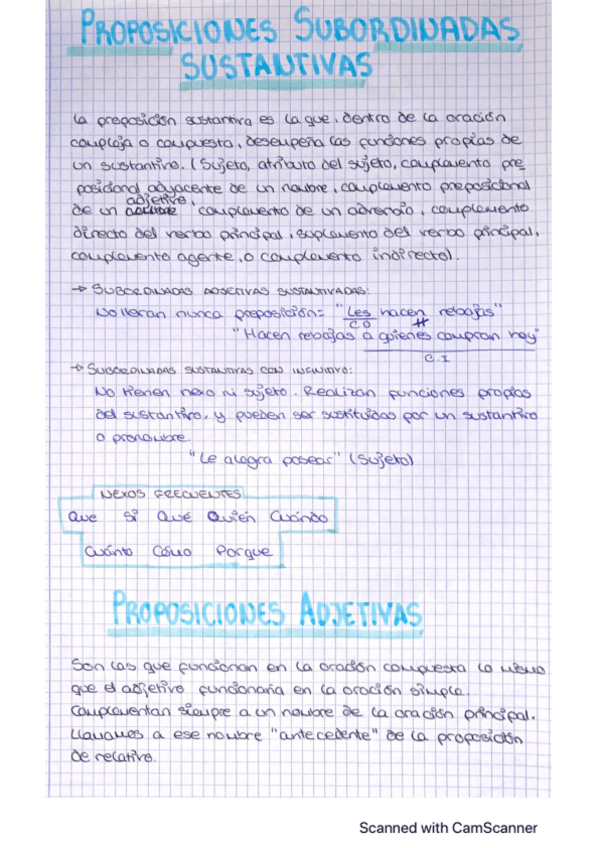 PROPOSICIONES SUBORDINADAS
SUSTANTIVAS
La proposición sustantiva es la que, dentro de la oración
compleja o compuesta, desempeña las funciones propias de
un sustantivo. (Sujeto, atributo del sujeto, complemento pre
posicional adyacente de un nombre, complemento preposicional
adjetivo,
de un nombre complemento de un adverbio, complemento
directo del verbo principal, suplemento del verbo principal,
complemento agente, o complemento indirecto).
→ SUBORDINADAS ADJETIVAS SUSTANTIVADAS:
No llevan nunca preposición= "Les hacen rebajas"
C.O #
"Hacen rebajas a quienes compran hoy"
C.I
→ SUBORDINADAS SUSTANTIVAS CON INFINITIVO:
No tienen nexo ni sujeto. Realizan funciones propias
del sustantivo, y pueden ser sustituidas por un sustantivo
o pronombre.
"Le alegra pasear" (Sujeto)
NEXOS FRECUENTES
Que Si Qué Quién Cuándo
Cuánto Cómo Porque
PROPOSICIONES ADJETIVAS
Son las que funcionan en la oración compuesta lo mismo
que el adjetivo funcionaria en la oración simple.
Complementan siempre a un nombre de la oración principal.
Llamamos a ese nombre "antecedente" de la proposición
de relativo.
Scanned with CamScanner